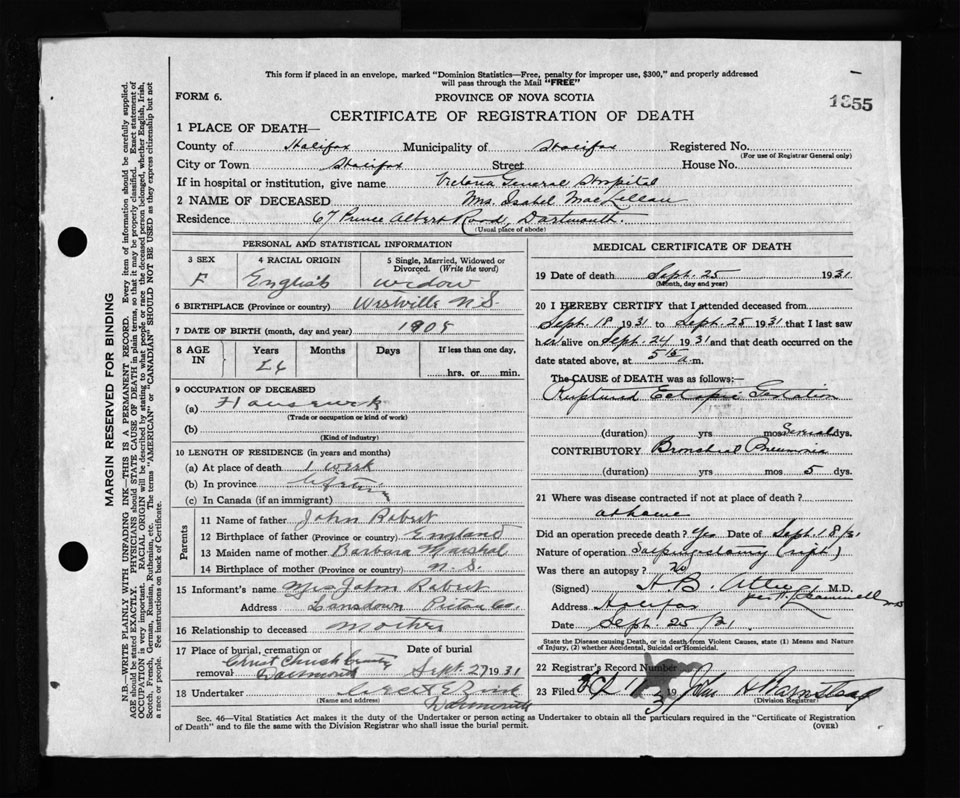 This form if placed in an envelope, marked "Dominion Statistics—Free, penalty for improper use, $300," and properly addressed
will pass through the Mail "FREE"
FORM 6.
PROVINCE OF NOVA SCOTIA
1355
CERTIFICATE OF REGISTRATION OF DEATH
1 PLACE OF DEATH—
County of Halifax Municipality of Halifax Registered No.
(For use of Registrar General only)
City or Town Halifax Street House No.
If in hospital or institution, give name Victoria General Hospital
2 NAME OF DECEASED Mrs. Isabel MacLellan
Residence 67 Prince Albert Road, Dartmouth.
(Usual place of abode)
PERSONAL AND STATISTICAL INFORMATION
3 SEX 4 RACIAL ORIGIN 5 Single, Married, Widowed or
Divorced. (Write the word)
F English widow
6 BIRTHPLACE (Province or country) Westville N.S.
7 DATE OF BIRTH (month, day and year)
8 AGE IN Years Months Days If less than one day,
26
hrs. or min.
9 OCCUPATION OF DECEASED
(a) Housework
(Trade or occupation or kind of work)
(b)
(Kind of industry)
10 LENGTH OF RESIDENCE (in years and months)
(a) At place of death 1 week
(b) In province lifetime
(c) In Canada (if an immigrant)
Parents
11 Name of father John Robert
12 Birthplace of father (Province or country) England
13 Maiden name of mother Barbara Marshal
14 Birthplace of mother (Province or country) N.S.
15 Informant's name Mrs John Robert
Address Lansdown Pictou Co.
16 Relationship to deceased Mother
17 Place of burial, cremation or removal Date of burial
Christ Church
Dartmouth Sept. 27 1931
18 Undertaker
(Name and address) Dartmouth
MEDICAL CERTIFICATE OF DEATH
19 Date of death Sept. 25 1931
(Month, day and year)
20 I HEREBY CERTIFY that I attended deceased from
Sept. 18 1931 to Sept. 25 1931 that I last saw
her alive on Sept. 24 1931 and that death occurred on the
date stated above, at 5 15 a.m.
The CAUSE OF DEATH was as follows;—
Ruptured Ectopic Gestation
(duration) yrs mos Several dys.
CONTRIBUTORY Bronchial Pneumonia
(duration) yrs mos 5 dys.
21 Where was disease contracted if not at place of death?
at home
Did an operation precede death? Yes Date of Sept. 18/31
Nature of operation Salpingectomy (right)
Was there an autopsy? No
(Signed) H. B. Atlee M.D.
Address Halifax
Date Sept. 25/31
State the Disease causing Death, or in death from Violent Causes, state (1) Means and Nature
of Injury, (2) whether Accidental, Suicidal or Homicidal.
22 Registrar's Record Number
23 Filed 19
(Division Registrar)
Sec. 46—Vital Statistics Act makes it the duty of the Undertaker or person acting as Undertaker to obtain all the particulars required in the "Certificate of Registration
of Death" and to file the same with the Division Registrar who shall issue the burial permit.
(OVER)
MARGIN RESERVED FOR BINDING
N.B.—WRITE PLAINLY WITH UNFADING INK—THIS IS A PERMANENT RECORD. Every item of information should be carefully supplied.
AGE should be stated EXACTLY. PHYSICIANS should STATE CAUSE OF DEATH in plain terms, so that it may be properly classified. Exact statement of
OCCUPATION is very important. RACIAL ORIGIN will be described by stating to what people or race the deceased person belonged, whether English, Irish,
Scotch, French, German, Russian, Ruthenian, etc. The terms "AMERICAN" or "CANADIAN" SHOULD NOT BE USED as they express citizenship but not
a race or people. See instructions on back of Certificate.